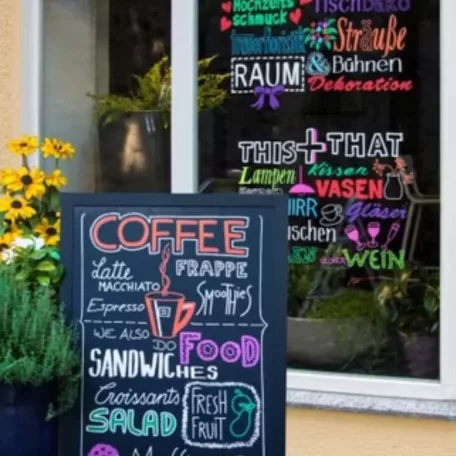 Hochzeits
schmuck
TischDEKO
trauerfloristik
Sträuße
RAUM
& Bühnen
Dekoration
THIS + THAT
Lampen
Kissen
VASEN
Gläser
WEIN
COFFEE
Latte
MACCHIATO
FRAPPE
Espresso
SMOOTHIES
WE ALSO
DO
FOOD
SANDWICHES
Croissants
SALAD
FRESH
FRUIT